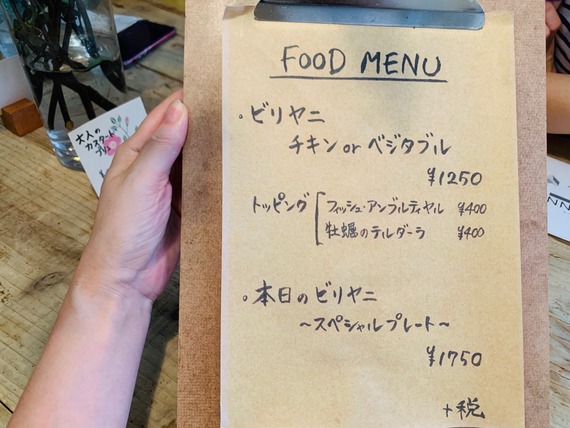 FOOD MENU
・ビリヤニ
チキン or ベジタブル
¥1250
トッピング フィッシュ・アンブルティヤル ¥400
牡蠣のテルダーラ ¥400
・本日のビリヤニ
〜スペシャルプレート〜
¥1750
+税
大人の
カスタード
プリン